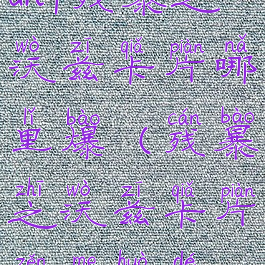 wò zī qiǎ piàn nǎ
沃兹卡片哪
lǐ bào cán bào
里爆(残暴
zhī wò zī qiǎ piàn
之沃兹卡片
zěn me huò dé